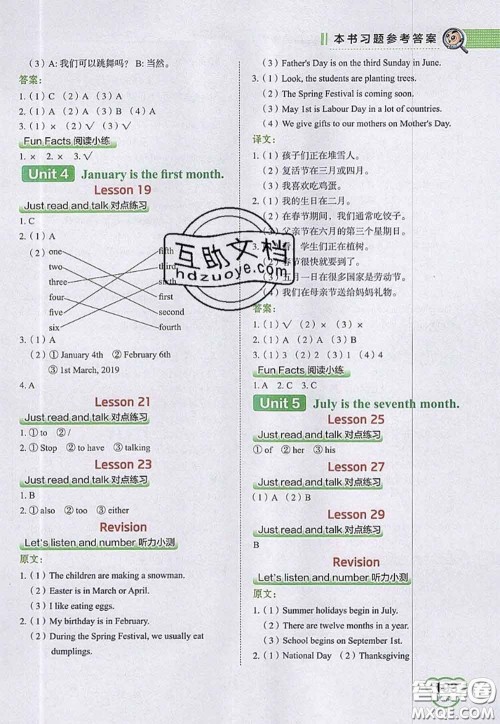 本书习题参考答案
(3) A: 我们可以跳舞吗? B: 当然。
答案:
1. (1) C (2) A (3) A
2. (1) A (2) B (3) A (4) A
3. (1) × (2) √ (3) √
Fun Facts 阅读小练
1. × 2. × 3. √
Unit 4 January is the first month.
Lesson 19
Just read and talk 对点练习
1. C
2. (1) A
(2) one
two
three
four
five
six
fifth
third
sixth
first
second
fourth
3. (1) A
(2) ① January 4th ② February 6th
③ 1st March, 2019
4. A
Lesson 21
Just read and talk 对点练习
1. ① to ② /
2. ① Stop ② to have ③ talking
Lesson 23
Just read and talk 对点练习
1. B
2. ① also ② too ③ either
Revision
Let's listen and number 听力小测
原文:
1. (1) The children are making a snowman.
(2) Easter is in March or April.
(3) I like eating eggs.
2. (1) My birthday is in February.
(2) During the Spring Festival, we usually eat
dumplings.
(3) Father's Day is on the third Sunday in June.
3. (1) Look, the students are planting trees.
(2) The Spring Festival is coming soon.
(3) May 1st is Labour Day in a lot of countries.
(4) We give gifts to our mothers on Mother's Day.
译文:
1. (1) 孩子们正在堆雪人。
(2) 复活节在三月或四月。
(3) 我喜欢吃鸡蛋。
2. (1) 我的生日在二月。
(2) 在春节期间,我们通常吃饺子。
(3) 父亲节在六月的第三个星期日。
3. 看,学生们正在植树。
春节很快就要到了。
五月一日在很多国家是劳动节。
(4) 我们在母亲节送给妈妈礼物。
答案:
1. (1) √ (2) × (3) ×
2. (1) A (2) B (3) A
3. (1) 3 (2) 2 (3) 1 (4) 4
Fun Facts 阅读小练
1. A 2. C 3. C
Unit 5 July is the seventh month.
Lesson 25
Just read and talk 对点练习
① of ② her ③ his
Lesson 27
Just read and talk 对点练习
(1) A (2) B
Lesson 29
Just read and talk 对点练习
B
Revision
Let's listen and number 听力小测
原文:
1. (1) Summer holidays begin in July.
(2) There are twelve months in a year.
(3) School begins on September 1st.
2. (1) National Day (2) Thanksgiving
互助文档
hdzuoye.com
答案圈
MXQE.COM